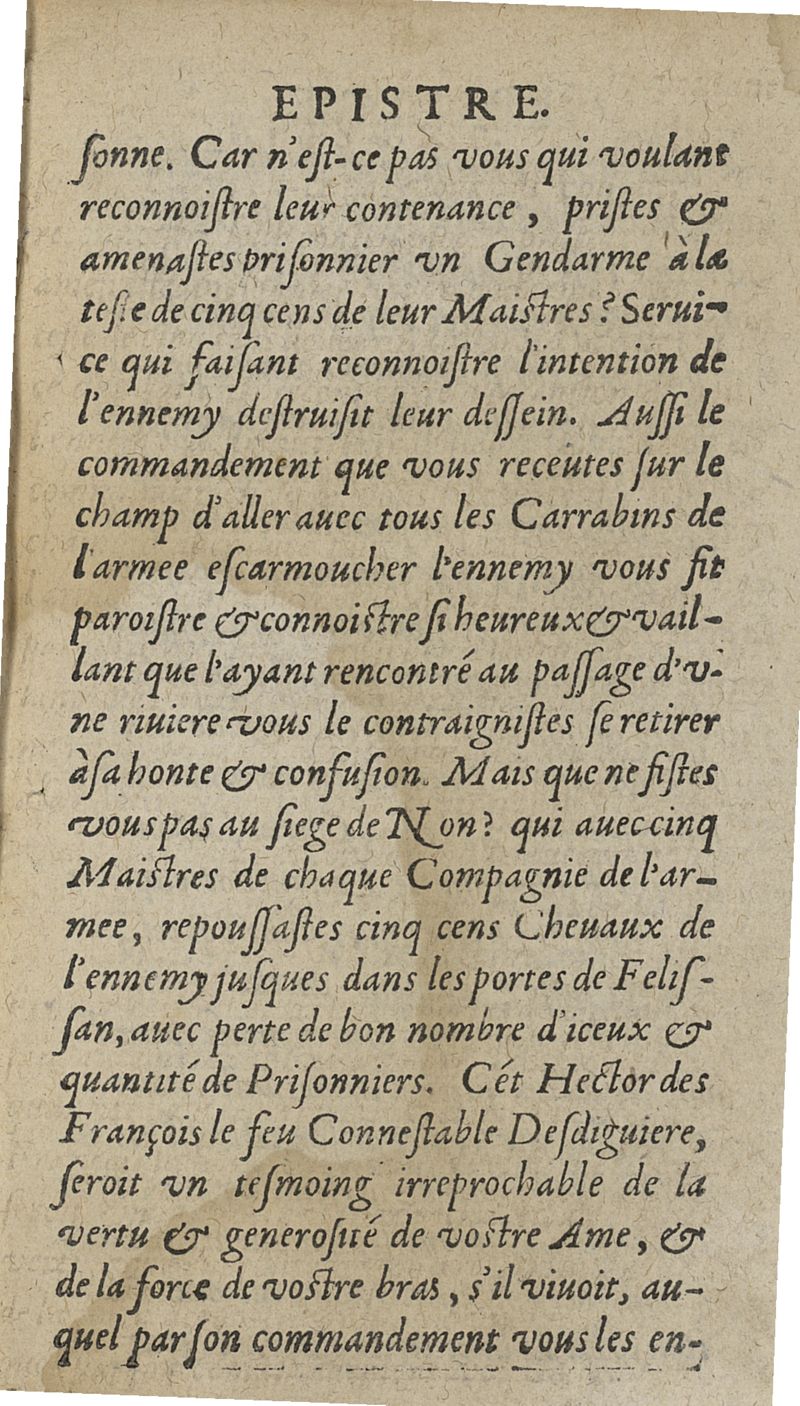 EPISTRE.
ſonne. Car n'eſt-ce pas vous qui voulant
reconnoiſtre leur contenance, priſtes &
amenaſtes priſonnier vn Gendarme à la
teſte de cinq cens de leur Maiſtres? Serui-
ce qui faiſant reconnoiſtre l'intention de
l'ennemy deſtruiſit leur deſſein. Auſſi le
commandement que vous receutes ſur le
champ d'aller auec tous les Carrabins de
l'armee eſcarmoucher l'ennemy vous fit
paroiſtre & connoiſtre ſi heureux & vail-
lant que l'ayant rencontré au paſſage d'v-
ne riuiere vous le contraigniſtes ſe retirer
à ſa honte & confuſion. Mais que ne fiſtes
vous pas au ſiege de Non? qui auec cinq
Maiſtres de chaque Compagnie de l'ar-
mee, repouſſaſtes cinq cens Cheuaux de
l'ennemy juſques dans les portes de Feliſ-
ſan, auec perte de bon nombre d'iceux &
quantité de Priſonniers. Cét Hector des
François le feu Conneſtable Deſdiguiere,
ſeroit vn teſmoing irreprochable de la
vertu & generoſité de voſtre Ame, &
de la force de voſtre bras, s'il viuoit, au-
quel par ſon commandement vous les en-